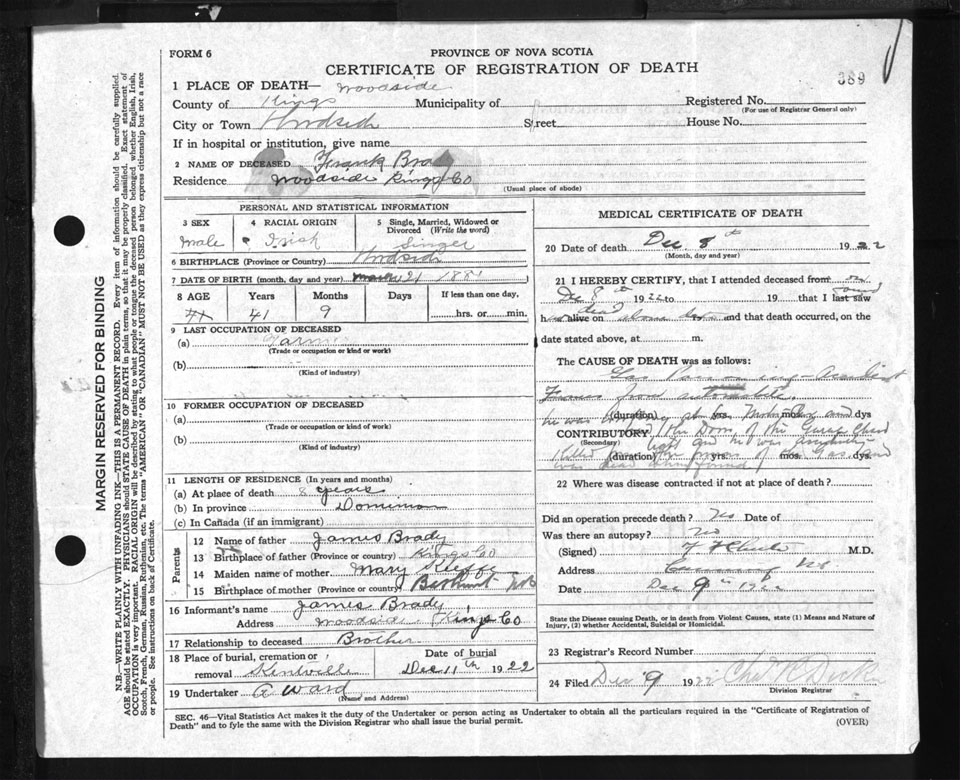 FORM 6
PROVINCE OF NOVA SCOTIA
CERTIFICATE OF REGISTRATION OF DEATH
389
1 PLACE OF DEATH— Woodside
County of Kings Municipality of Registered No.
(For use of Registrar General only)
City or Town Woodside Street House No.
If in hospital or institution, give name
2 NAME OF DECEASED Frank Brady
Residence Woodside Kings Co
(Usual place of abode)
MARGIN RESERVED FOR BINDING
N.B.—WRITE PLAINLY WITH UNFADING INK—THIS IS A PERMANENT RECORD. Every item of information should be carefully supplied.
AGE should be stated EXACTLY. PHYSICIANS should STATE CAUSE OF DEATH in plain terms, so that it may be properly classified. Exact statement of
OCCUPATION is very important. RACIAL ORIGIN will be described by stating to what people or tongue the deceased person belonged whether English, Irish,
Scotch, French, German, Russian, Ruthenian, etc. The terms "AMERICAN" OR "CANADIAN" MUST NOT BE USED as they express citizenship but not a race
or people. See instructions on back of Certificate.
PERSONAL AND STATISTICAL INFORMATION
3 SEX 4 RACIAL ORIGIN 5 Single, Married, Widowed or
Divorced (Write the word)
Male Irish Singer
6 BIRTHPLACE (Province or Country) Woodside
7 DATE OF BIRTH (month, day and year) March 21 1881
8 AGE Years Months Days If less than one day,
41 41 9 hrs. or min.
9 LAST OCCUPATION OF DECEASED
(a)
(Trade or occupation or kind or work)
(b)
(Kind of industry)
10 FORMER OCCUPATION OF DECEASED
(a)
(Trade or occupation or kind of work)
(b)
(Kind of industry)
11 LENGTH OF RESIDENCE (In years and months)
(a) At place of death 8 years
(b) In province Dominion
(c) In Canada (if an immigrant)
Parents
12 Name of father James Brady
13 Birthplace of father (Province or country) Kings Co
14 Maiden name of mother Mary
15 Birthplace of mother (Province or country) NB
16 Informant's name James Brady
Address Woodside, Kings Co
17 Relationship to deceased Brother
18 Place of burial, cremation or Date of burial
removal Kentville Dec 11th 1922
19 Undertaker A Ward
(Name and Address)
MEDICAL CERTIFICATE OF DEATH
20 Date of death Dec 8th 1922
(Month, day and year)
21 I HEREBY CERTIFY, that I attended deceased from on
Dec 8th 1922 to 19 that I last saw found
h alive on dead above date and that death occurred, on the
date stated above, at m.
The CAUSE OF DEATH was as follows:
Gas Poisoning—Accident
Fumes from automobile.
he was at and
(duration) yrs. mos. dys
the Door of the
CONTRIBUTORY
(Secondary) light and he was
(duration) yrs. of mos. Gas and dys.
was dead when found
22 Where was disease contracted if not at place of death?
Did an operation precede death? No Date of
Was there an autopsy? No
(Signed) M.D.
Address Canning NS
Date Dec 9th 1922
State the Disease causing Death, or in death from Violent Causes, state (1) Means and Nature of
Injury, (2) whether Accidental, Suicidal or Homicidal.
23 Registrar's Record Number
24 Filed Dec 9 1922
Division Registrar
SEC. 46—Vital Statistics Act makes it the duty of the Undertaker or person acting as Undertaker to obtain all the particulars required in the "Certificate of Registration of
Death" and to fyle the same with the Division Registrar who shall issue the burial permit. (OVER)